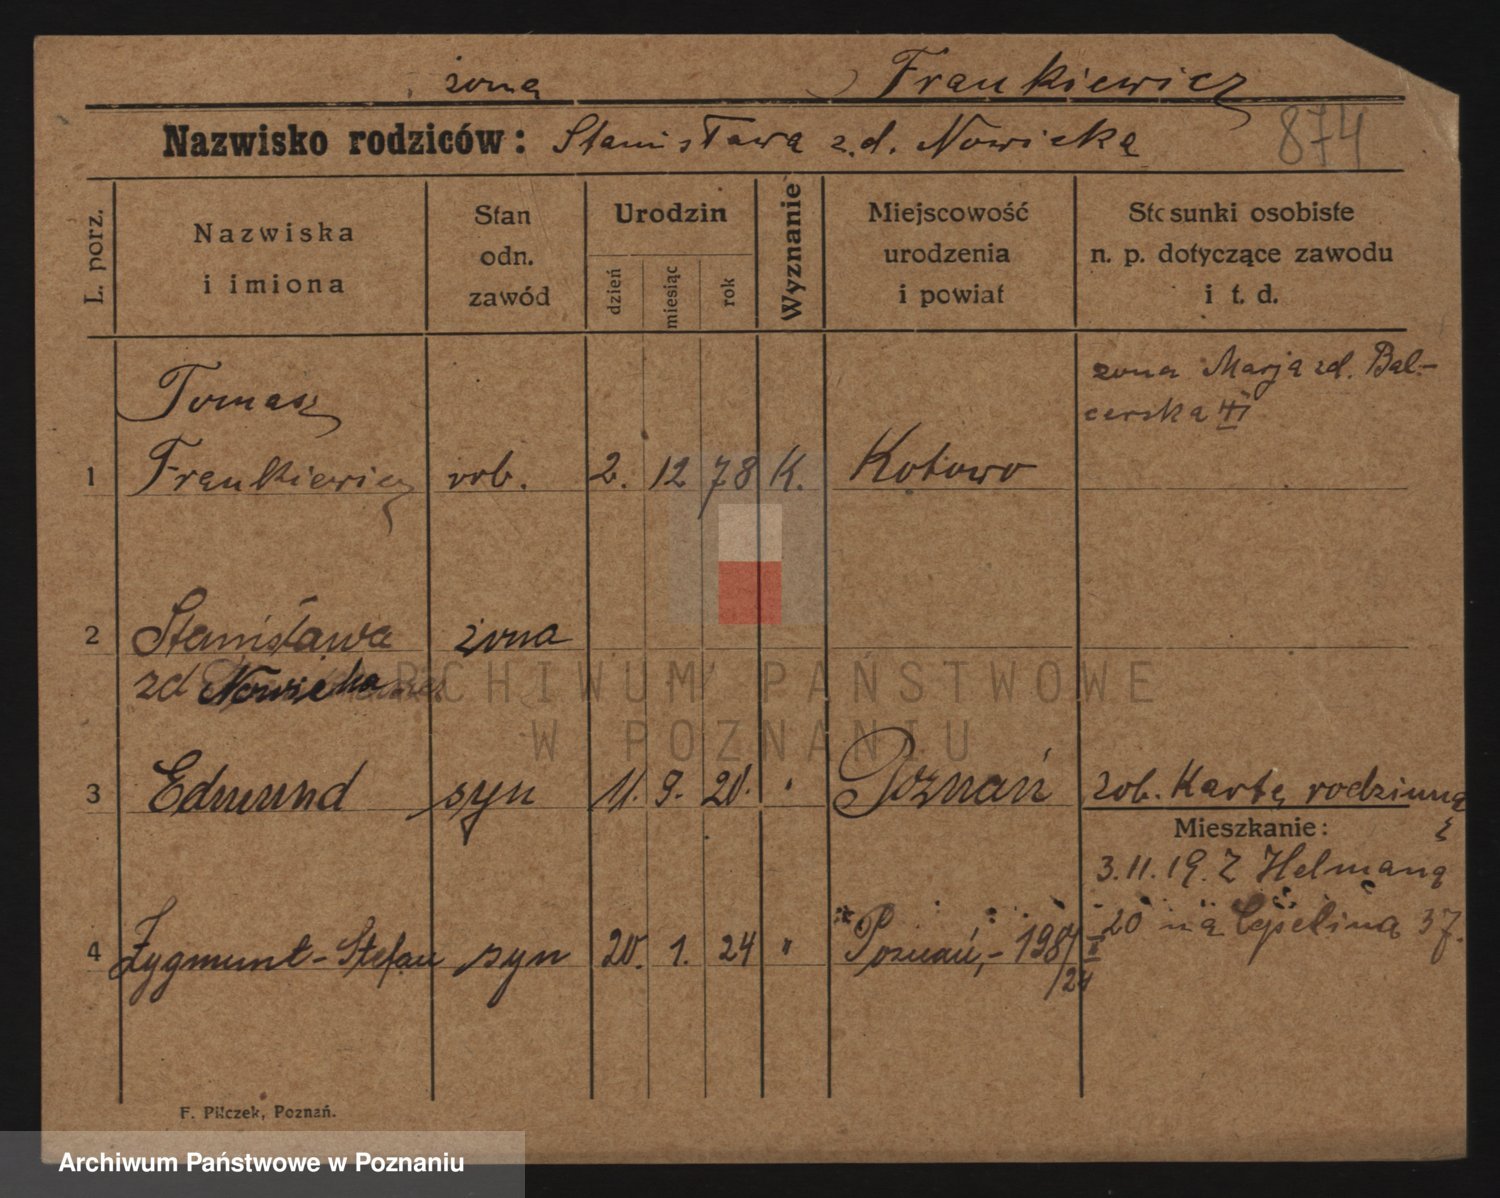 żona Frankiewicz
Nazwisko rodziców: Stanisława z.d. Nowicka
874
L. porz.
Nazwiska
i imiona
Stan
odn.
zawód
Urodzin
dzień
miesiąc
rok
Wyznanie
Miejscowość
urodzenia
i powiat
Stosunki osobiste
n. p. dotyczące zawodu
i t. d.
żona Marja zd. Bal-
cerska
Tomasz
1 Frankiewicz rob. 2. 12 78 K. Kotowo
2 Stanisława żona
zd Nowicka
3 Edmund syn 11. 9. 20. " Poznań zob. Kartę rodzinną
Mieszkanie:
3.11.19. Z Helmana
20 na 37.
4 Zygmunt-Stefan syn 20. 1. 24 " *Poznań,- 198/I
/24
F. Pilczek, Poznań.
ARCHIWUM PAŃSTWOWE
W POZNANIU
Archiwum Państwowe w Poznaniu